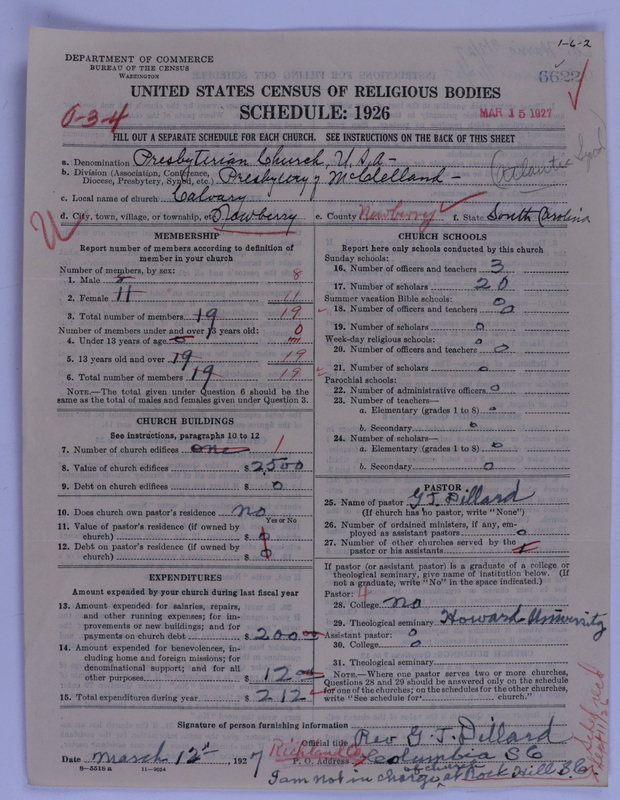 1-6-2
DEPARTMENT OF COMMERCE
BUREAU OF THE CENSUS
WASHINGTON
6622
UNITED STATES CENSUS OF RELIGIOUS BODIES
SCHEDULE: 1926
MAR 15 1927
0-3-4
FILL OUT A SEPARATE SCHEDULE FOR EACH CHURCH. SEE INSTRUCTIONS ON THE BACK OF THIS SHEET
a. Denomination Presbyterian Church, U.S.A-
(Atlantic Synod)
b. Division (Association, Conference, Diocese, Presbytery, Synod, etc.) Presbytery of McClelland-
c. Local name of church Calvary
d. City, town, village, or township, etc. Newberry e. County Newberry f. State South Carolina
MEMBERSHIP
Report number of members according to definition of
member in your church
Number of members, by sex:
1. Male 8 8
2. Female 11 11
3. Total number of members 19 19
Number of members under and over 13 years old:
4. Under 13 years of age 0 0
5. 13 years old and over 19 19
6. Total number of members 19 19
NOTE.—The total given under Question 6 should be the
same as the total of males and females given under Question 3.
CHURCH BUILDINGS
See instructions, paragraphs 10 to 12
7. Number of church edifices one 1
8. Value of church edifices $2,500
9. Debt on church edifices $ 0
10. Does church own pastor's residence no
Yes or No
11. Value of pastor's residence (if owned by
church) $ 0
12. Debt on pastor's residence (if owned by
church) $ 0
EXPENDITURES
Amount expended by your church during last fiscal year
13. Amount expended for salaries, repairs,
and other running expenses; for im-
provements or new buildings; and for
payments on church debt $ 200
14. Amount expended for benevolences, in-
cluding home and foreign missions; for
denominational support; and for all
other purposes $ 12
15. Total expenditures during year $ 212
CHURCH SCHOOLS
Report here only schools conducted by this church
Sunday schools:
16. Number of officers and teachers 3
17. Number of scholars 20
Summer vacation Bible schools: 0
18. Number of officers and teachers 0
19. Number of scholars 0
Week-day religious schools: 0
20. Number of officers and teachers 0
21. Number of scholars 0
Parochial schools:
22. Number of administrative officers 0
23. Number of teachers—
a. Elementary (grades 1 to 8) 0
b. Secondary 0
24. Number of scholars—
a. Elementary (grades 1 to 8) 0
b. Secondary 0
PASTOR
25. Name of pastor G.J. Dillard
(If church has no pastor, write "None")
26. Number of ordained ministers, if any, em-
ployed as assistant pastors 0
27. Number of other churches served by the
pastor or his assistants
If pastor (or assistant pastor) is a graduate of a college or
theological seminary, give name of institution below. (If
not a graduate, write "No" in the space indicated.)
Pastor: 4
28. College no
29. Theological seminary Howard University
Assistant pastor: 0
30. College 0
31. Theological seminary
NOTE.—Where one pastor serves two or more churches,
Questions 28 and 29 should be answered only on the schedule
for one of the churches; on the schedules for the other churches,
write "See schedule for church."
Signature of person furnishing information Rev G. J. Dillard
Official title
Date March 12th, 1927 Richland Co P. O. Address Columbia S C
8—5518 a 11—9654
I am not in charge of church at Rock Hill S.C.